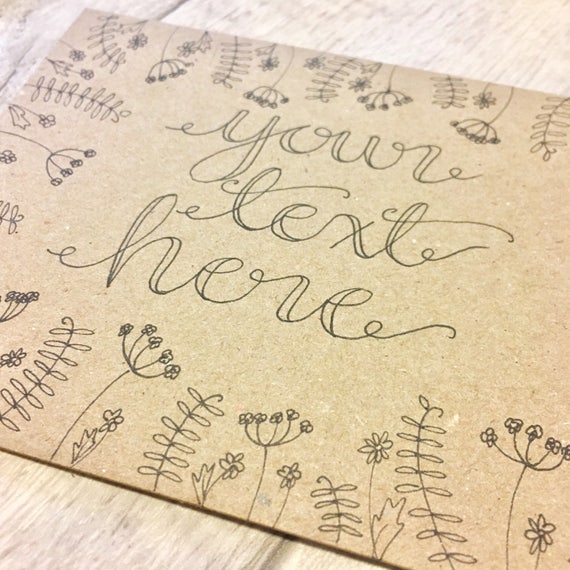 your
text
here